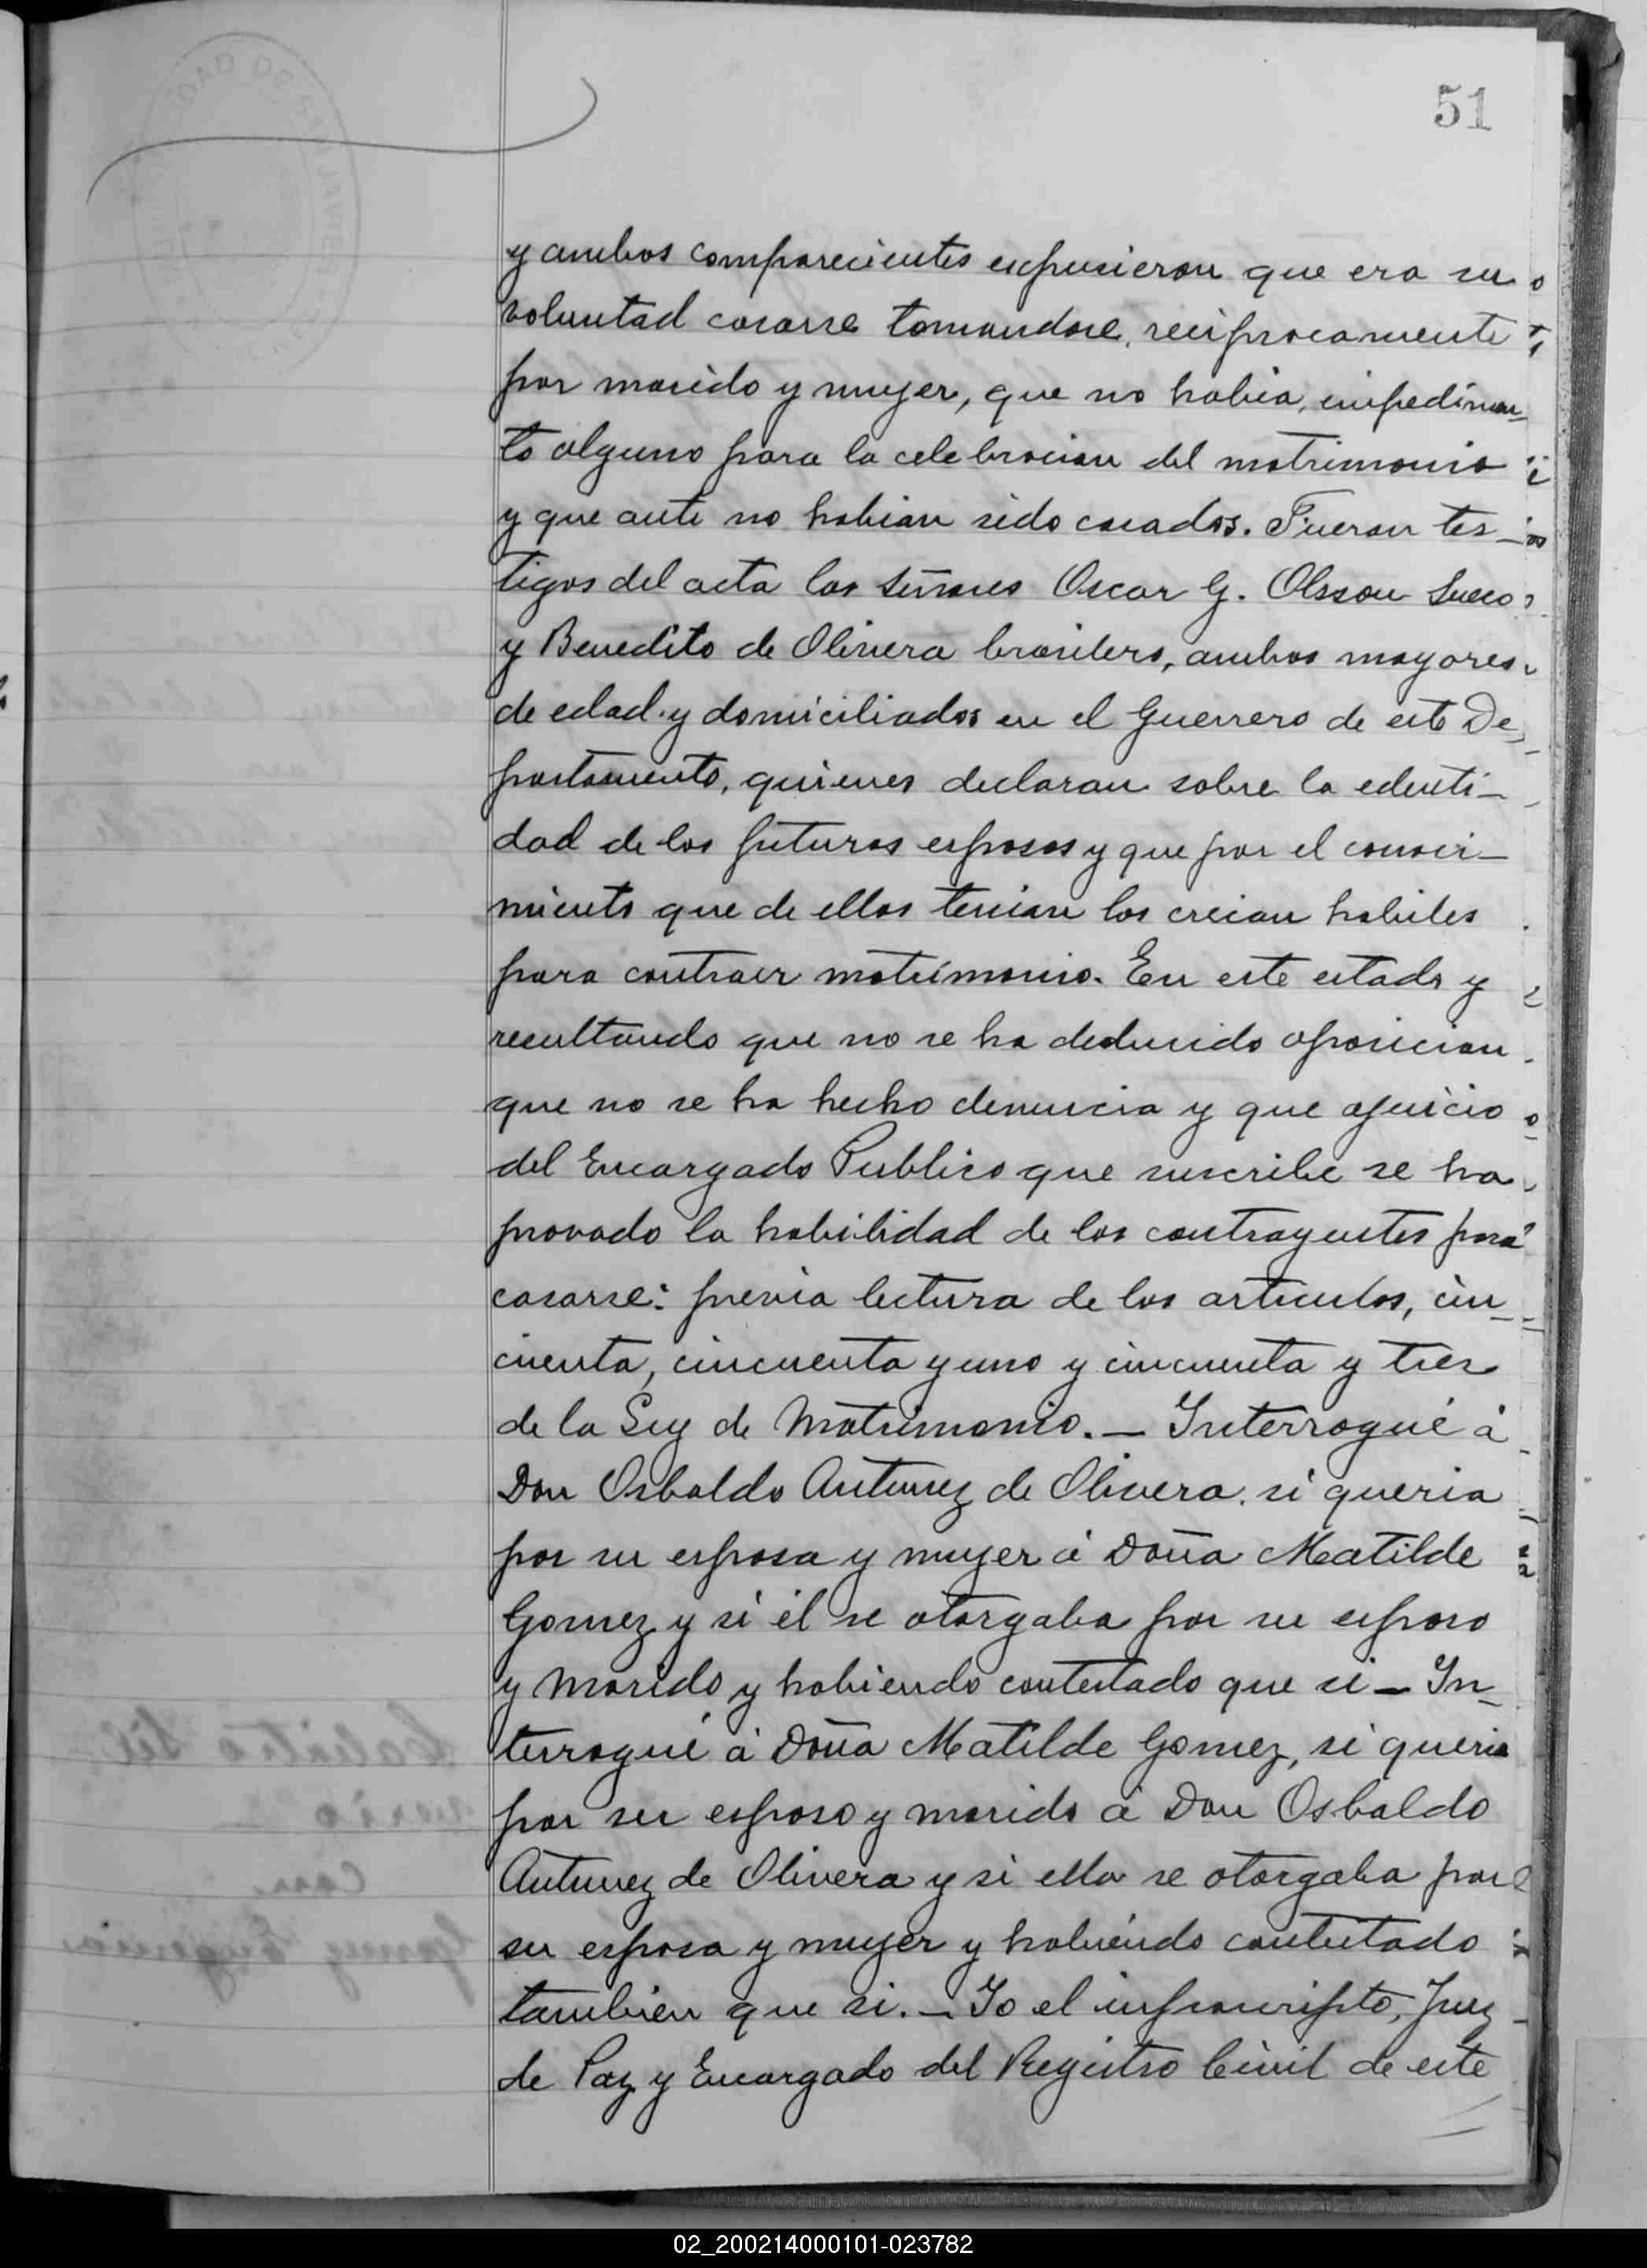 51
y ambos comparecientes expusieron que era su
voluntad casarse tomandose, reciprocamente
por marido y mujer, que no habia, impedimen_
to alguno para la celebracion del matrimonio
y que ante no habian sido casados. Fueron tes_
tigos del acta los señores Oscar G. Olsson Sueco
y Benedito de Olivera brasilero, ambos mayores
de edad y domiciliados en el Guerrero de este De_
partamento, quienes declaran sobre la edenti_
dad de los futuros esposos y que por el conoci_
miento que de ellos tenian los creian habiles
para contraer matrimonio. En este estado y
resultando que no se ha deducido oposicion
que no se ha hecho denuncia y que ajuicio
del Encargado Publico que suscribe se ha
provado la habilidad de los contrayentes para
casarse: previa lectura de los articulos, cin_
cuenta, cincuenta y uno y cincuenta y tres
de la Ley de Matrimonio. _ Interrogué á
Don Osbaldo Antunez de Olivera. si queria
por su esposa y mujer á Doña Matilde
Gomez y si él se otorgaba por su esposo
y Marido y habiendo contestado que si _ In_
terrogué á Doña Matilde Gomez, si queria
por su esposo y marido á Don Osbaldo
Antunez de Olivera y si ella se otorgaba por
su esposa y mujer y habiendo contestado
tambien que si. _ Yo el infrascripto, Juez
de Paz y Encargado del Registro Civil de este
02_200214000101-023782